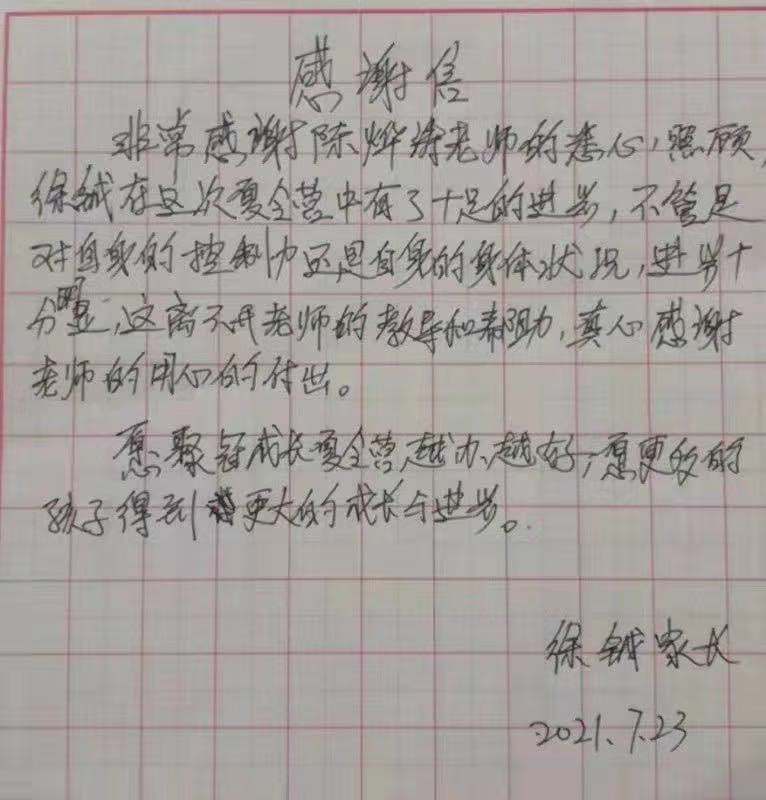 感谢信
非常感谢陈烨涛老师的悉心照顾,
徐铖在这次夏令营中有了十足的进步,不管是
对自身的控制力还是自身的身体状况,进步十
分明显,这离不开老师的教导和帮助,真心感谢
老师的用心的付出。
愿聚冠成长夏令营越办越好,愿更多的
孩子得到更大的成长与进步。
徐铖家长
2021.7.23